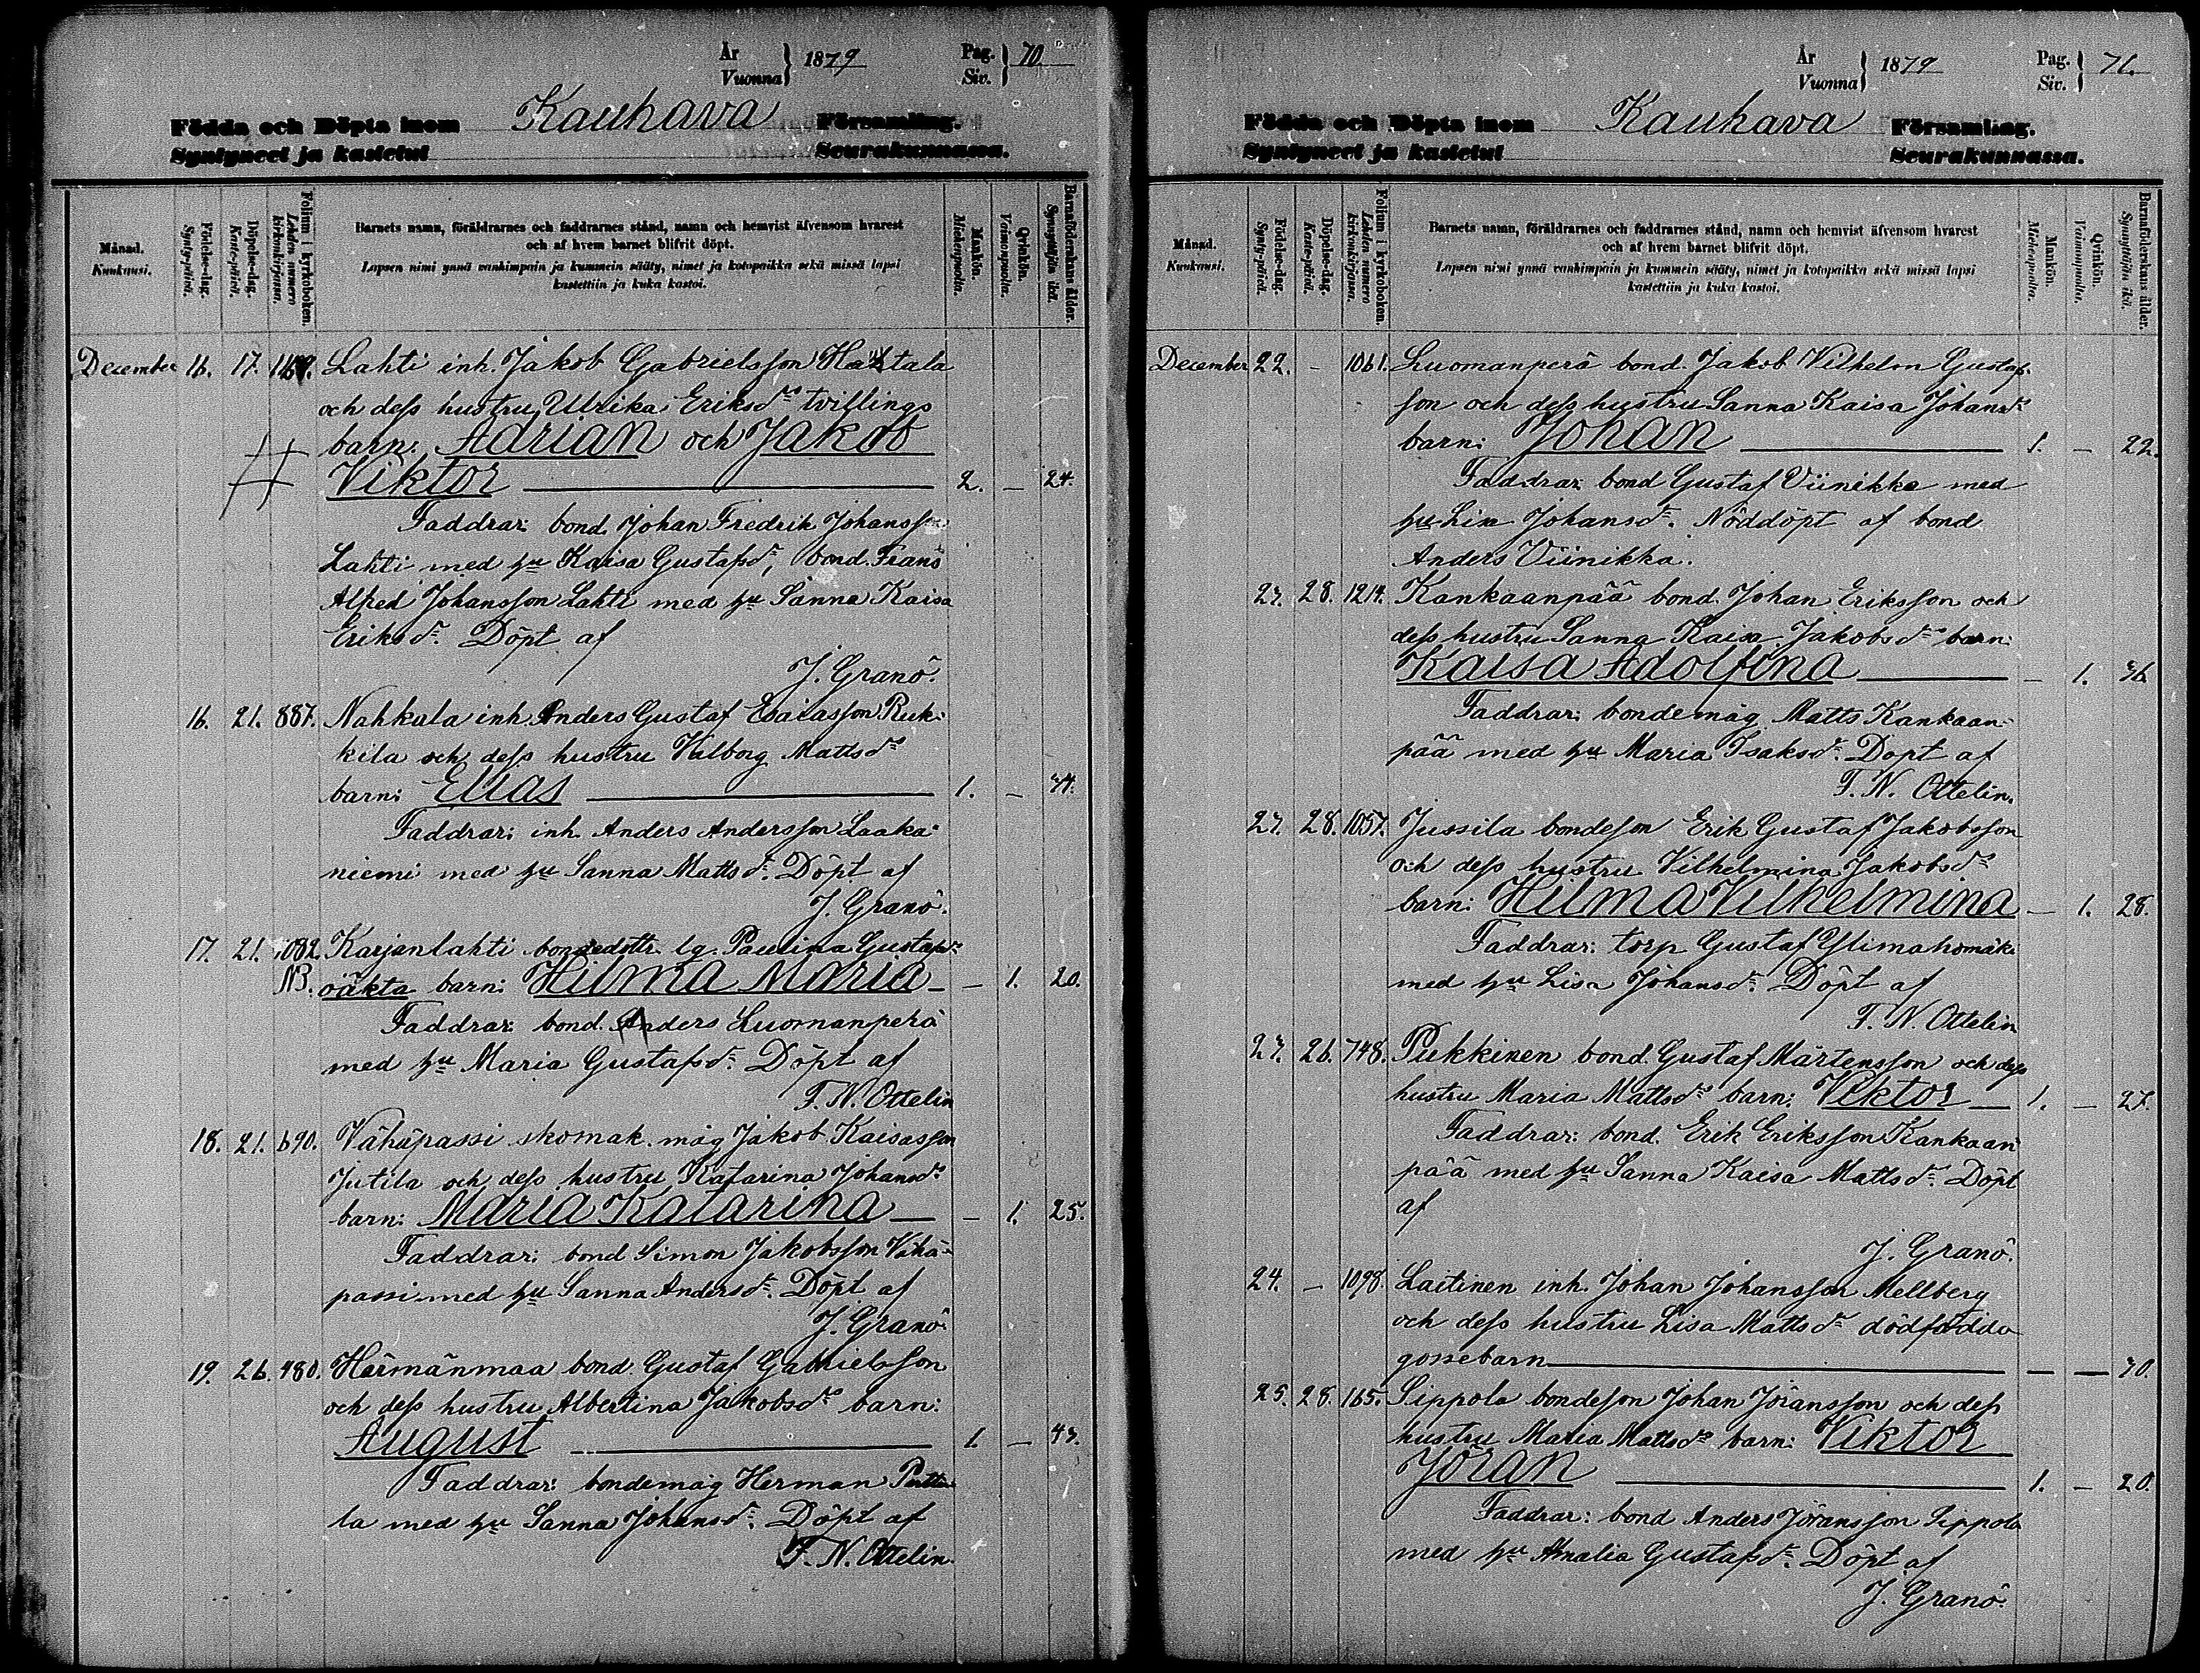 År
Vuonna } 1879
Pag.
Siv. } 70.
Födda och Döpta inom Kauhava Församling.
Syntyneet ja kastetut Seurakunnassa.
Månad.
Kuukausi.
Födelse-dag.
Synty-päivä.
Döpelse-dag.
Kaste-päivä.
Folium i kyrkoboken.
Lehden numero kirkonkirjassa.
Barnets namn, föräldrarnes och faddrarnes stånd, namn och hemvist äfvensom hvarest
och af hvem barnet blifvit döpt.
Lapsen nimi ynnä vanhimpain ja kummein sääty, nimet ja kotopaikka sekä missä lapsi
kastettiin ja kuka kastoi.
Mankön.
Miehenpuolta.
Qvinkön.
Vaimonpuolta.
Barnaföderskans ålder.
Synnyttäjän ikä.
December 16. 17. Lahti inh. Jakob Gabrielsson
och dess hustru Ulrika Eriksdr tvillings
barn: Adrian och Jakob
Viktor 2. – 24.
Faddrar: bond. Johan Fredrik Johansson
Lahti med hu Kaisa Gustafsdr, bond. Frans
Alfred Johansson Lahti med hu Sanna Kaisa
Eriksdr. Döpt af
J. Granö.
16. 21. 887. Nahkala inh. Anders Gustaf Esaiasson Ruk-
kila och dess hustru Valborg Mattsdr
barn: Elias 1. –
Faddrar: inh. Anders Andersson Laaka-
niemi med hu Sanna Mattsdr. Döpt af
J. Granö.
17. 21. 1082. Karjanlahti bondedottr lg. Paulina Gustafsdr
NB. oäkta barn: Hilma Maria – – 1. 20.
Faddrar: bond. Anders Luomanperä
med hu Maria Gustafsdr. Döpt af
F. N. Ottelin
18. 21. 690. Vähäpassi skomak. måg Jakob Kaisasson
Jutila och dess hustru Katarina Johansdr
barn: Maria Katarina – – 1. 25.
Faddrar: bond Simon Jakobsson Vähä-
passi med hu Sanna Andersdr. Döpt af
J. Granö
19. 26. 480. Härmänmaa bond. Gustaf Gabrielsson
och dess hustru Albertina Jakobsdr barn:
August 1. – 43.
Faddrar: bondemåg Herman
la med hu Sanna Johansdr. Döpt af
F. N. Ottelin.
År
Vuonna } 1879
Pag.
Siv. } 71.
Födda och Döpta inom Kauhava Församling.
Syntyneet ja kastetut Seurakunnassa.
Månad.
Kuukausi.
Födelse-dag.
Synty-päivä.
Döpelse-dag.
Kaste-päivä.
Folium i kyrkoboken.
Lehden numero kirkonkirjassa.
Barnets namn, föräldrarnes och faddrarnes stånd, namn och hemvist äfvensom hvarest
och af hvem barnet blifvit döpt.
Lapsen nimi ynnä vanhimpain ja kummein sääty, nimet ja kotopaikka sekä missä lapsi
kastettiin ja kuka kastoi.
Mankön.
Miehenpuolta.
Qvinkön.
Vaimonpuolta.
Barnaföderskans ålder.
Synnyttäjän ikä.
December 22. – 1061. Luomanperä bond. Jakob Vilhelm Gustafs-
son och dess hustru Sanna Kaisa Johansdr
barn: Johan 1. – 22.
Faddrar: bond Gustaf Viinikka med
hu Lisa Johansdr. Nöddöpt af bond
Anders Viinikka.
27. 28. 1214. Kankaanpää bond. Johan Eriksson och
dess hustru Sanna Kaisa Jakobsdr barn:
Kaisa Adolfina – 1. 36.
Faddrar: bondemåg Matts Kankaan-
pää med hu Maria Isaksdr. Döpt af
F. N. Ottelin.
27. 28. 1057. Jussila bondeson Erik Gustaf Jakobsson
och dess hustru Vilhelmina Jakobsdr
barn: Hilma Vilhelmina – 1. 28.
Faddrar: torp Gustaf Ylimahomäki
med hu Lisa Johansdr. Döpt af
F. N. Ottelin
27. 26. 748. Pukkinen bond. Gustaf Mårtensson och dess
hustru Maria Mattsdr barn: Viktor 1. – 27.
Faddrar: bond. Erik Eriksson Kankaan
pää med hu Sanna Kaisa Mattsdr. Döpt
af
J. Granö.
24. – 1098. Laitinen inh. Johan Johansson Mellberg
och dess hustru Lisa Mattsdr dödfödda
gossebarn – –
25. 28. 165. Sippola bondeson Johan Jöransson och dess
hustru Maria Mattsdr barn: Viktor
Jöran 1. – 20.
Faddrar: bond Anders Jöransson Sippola
med hu Amalia Gustafsdr. Döpt af
J. Granö.